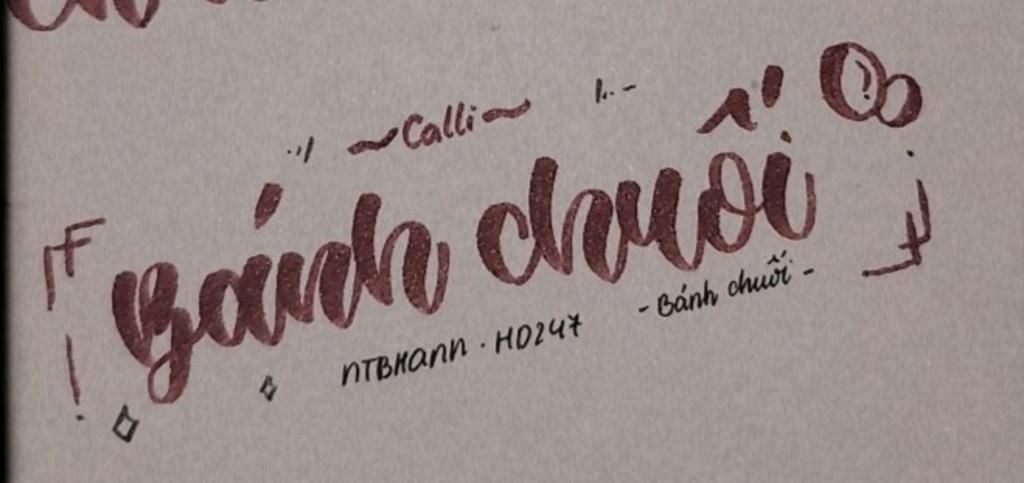 ~Calli~
Bánh chuối
- Bánh chuối -
nTBHann . HD247